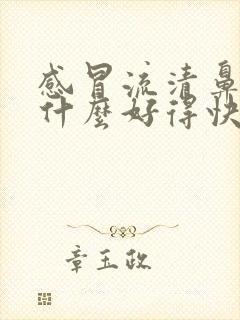 感冒流清鼻
什麼好得快
章玉政